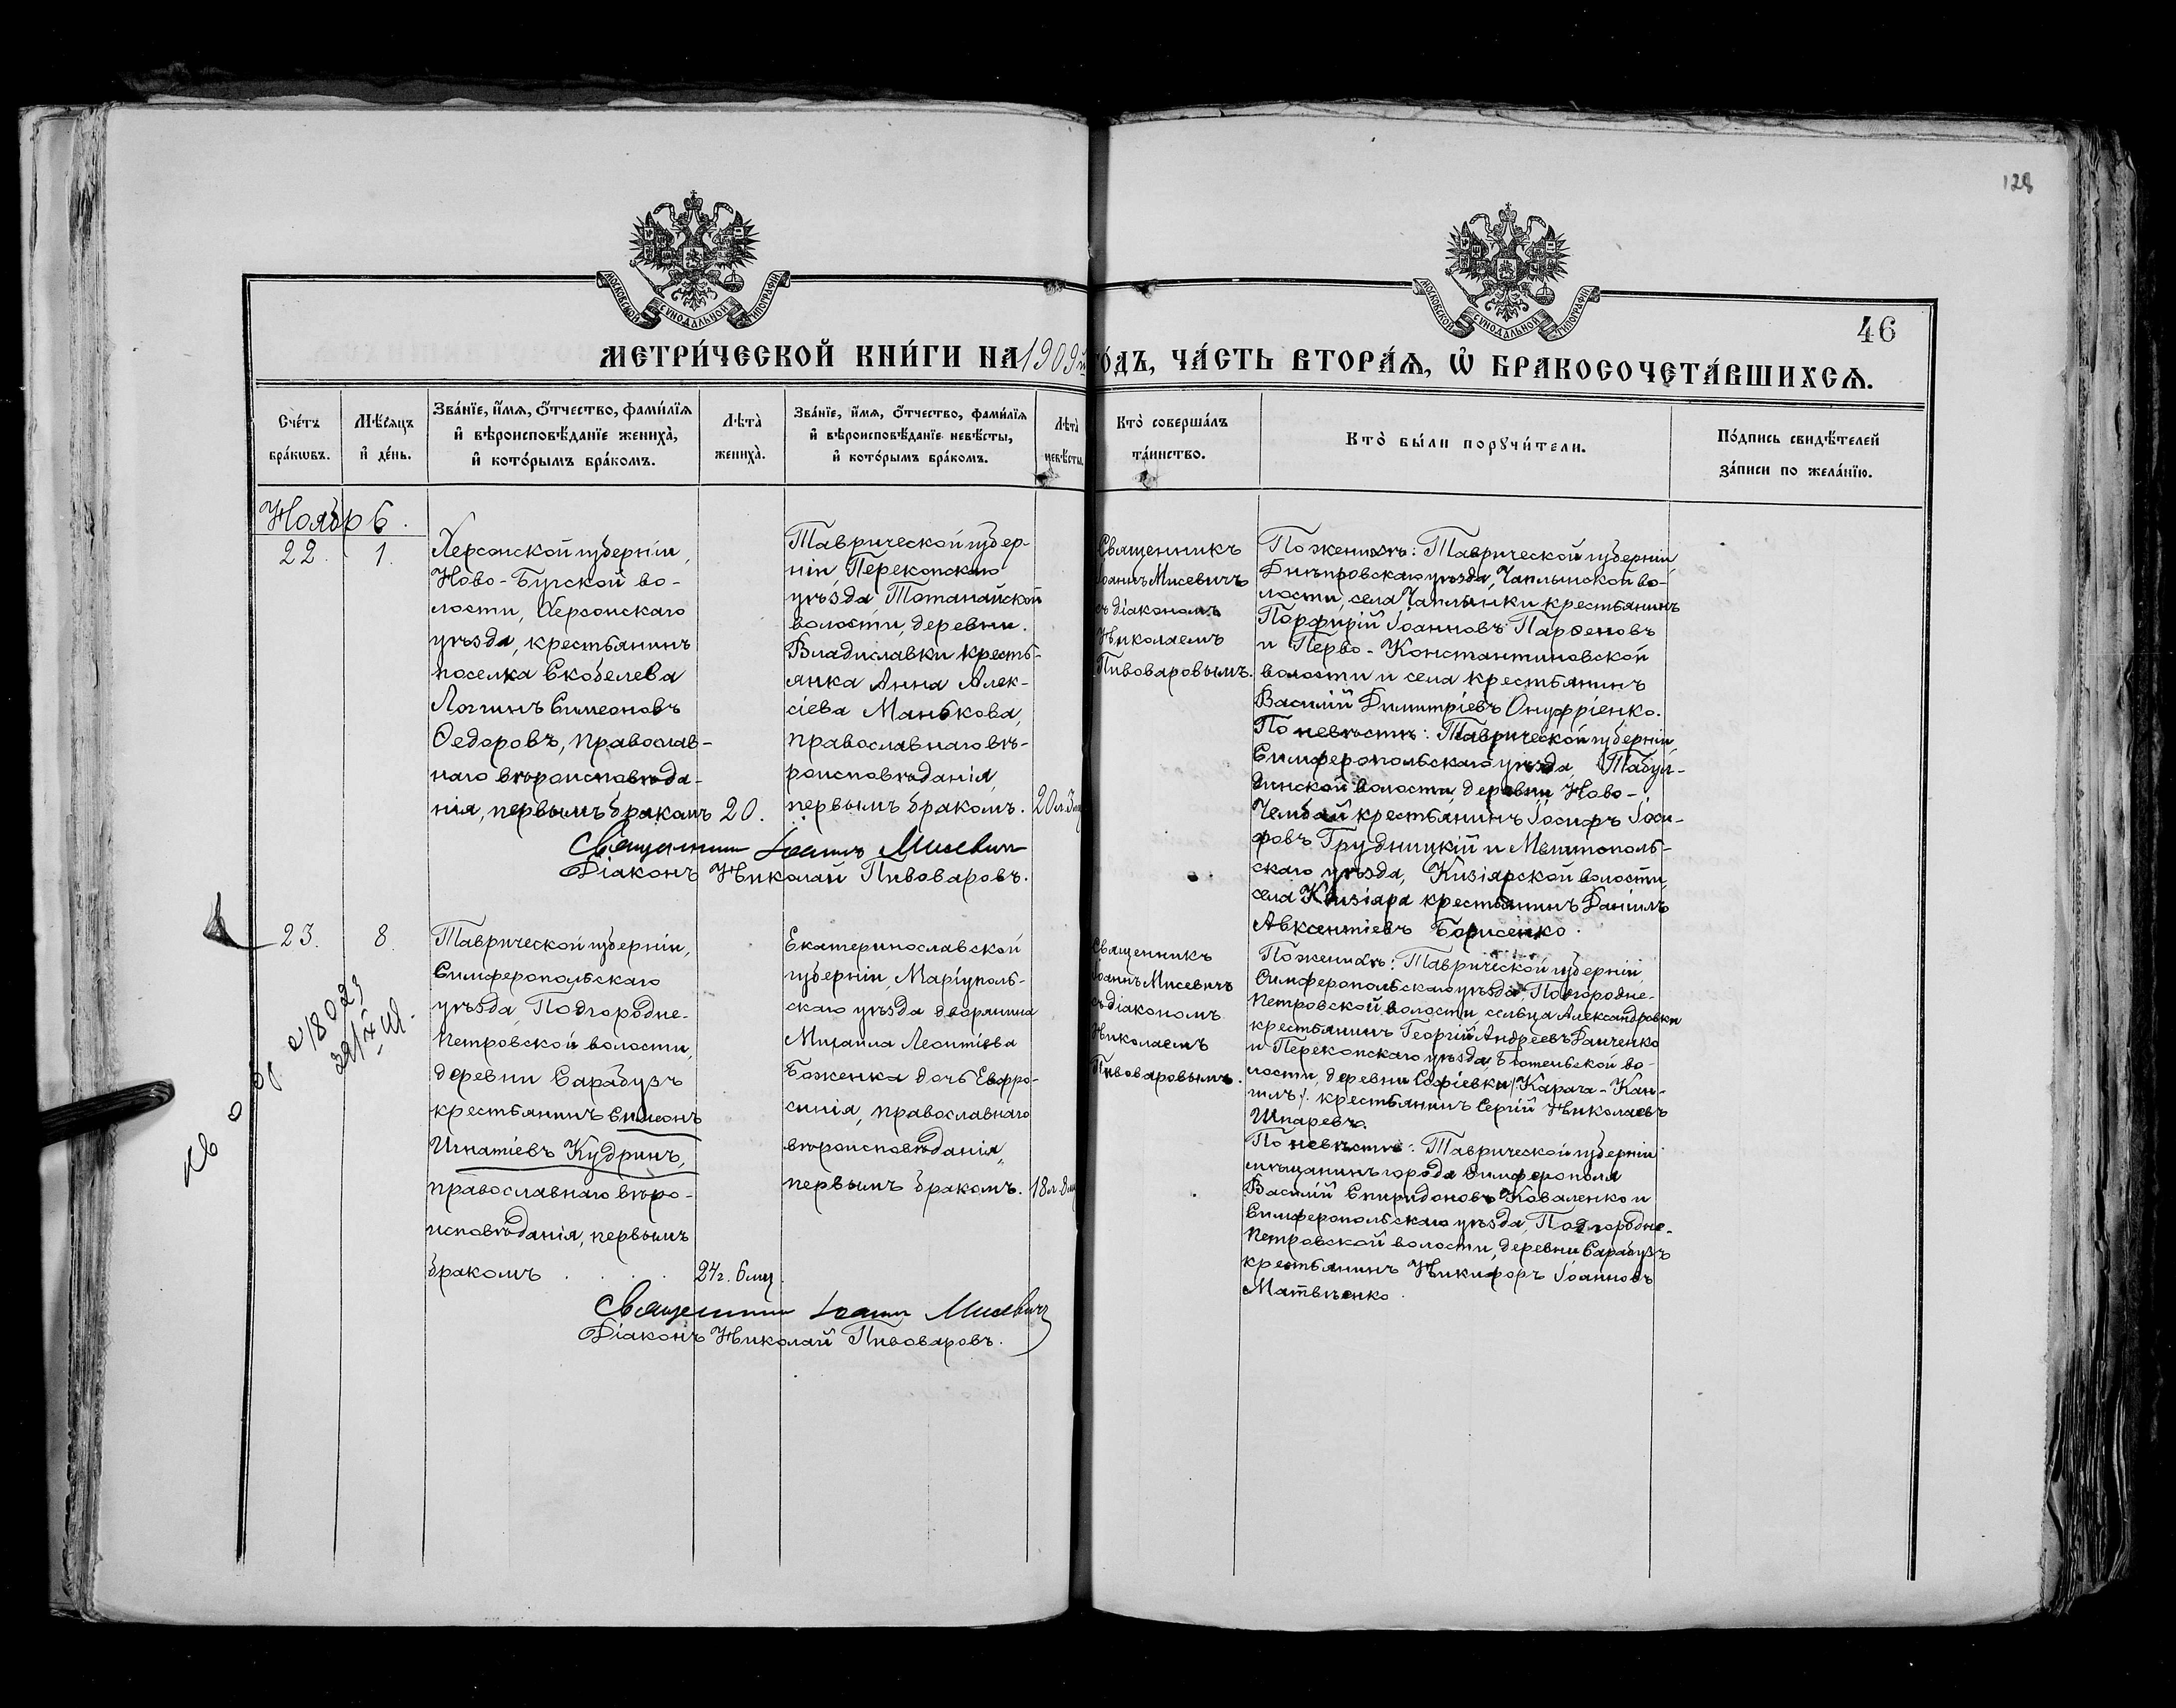 128
МОСКОВСКОЙ СѴНОДАЛЬНОЙ ТИПОГРАФІИ
МОСКОВСКОЙ СѴНОДАЛЬНОЙ ТИПОГРАФІИ
46
МЕТРИ́ЧЕСКОЙ КНИ́ГИ НА 1909й ГО́ДЪ, ЧА́СТЬ ВТОРА́Ѧ, Ѡ҆ БРАКОСОЧЕТА́ВШИХСѦ.
Сче́тъ
бра́кѡвъ.
Мѣ́сяцъ
и҆ де́нь.
Зва́нїе, и҆́мѧ, ѻ҆́тчество, фами́лїѧ
и҆ вѣроисповѣ́данїе жениха̀,
и҆ кото́рымъ бра́комъ.
Лѣта̀
жениха̀.
Зва́нїе, и҆́мѧ, ѻ҆́тчество, фами́лїѧ
и҆ вѣроисповѣ́данїе невѣ́сты,
и҆ кото́рымъ бра́комъ.
Лѣта̀
невѣ́сты.
Кто̀ соверша́лъ
та́инство.
Кто̀ бы́ли порꙋчи́тели.
По́дпись свидѣ́телей
за́писи по жела́нїю.
Ноябрь
22.
1.
Херсонской губерніи,
Ново-Бугской во-
лости, Херсонскаго
уѣзда, крестьянинъ
поселка Скобелева
Логгинъ Симеоновъ
Ѳедоровъ, православ-
наго вѣроисповѣда-
нія, первымъ бракомъ
20.
Таврической губер-
ніи, Перекопскаго
уѣзда, Тотанайской
волости, деревни
Владиславки кресть-
янка Анна Алек-
сіева Манькова,
православнаго вѣ-
роисповѣданія,
первымъ бракомъ.
20 л. 3 м
Священникъ
Іоаннъ Мисевичъ
съ діакономъ
Николаемъ
Пивоваровымъ.
По женихѣ: Таврической губерніи
Днѣпровскаго уѣзда, Чаплынской во-
лости, села Чаплынки крестьянинъ
Порфирій Іоанновъ Парѳеновъ
и Перво-Константиновской
волости и села крестьянинъ
Василій Димитріевъ Онуфріенко.
По невѣстѣ: Таврической губерніи,
Симферопольскаго уѣзда, Табул-
динской волости, деревни Ново-
Чембай крестьянинъ Іосифъ Іоси-
фовъ Грудницкій и Мелитополь-
скаго уѣзда, Кизіярской волости,
села Кизіяра крестьянинъ Даніилъ
Авксентіевъ Борисенко.
Священникъ Іоаннъ Мисевичъ
Діаконъ Николай Пивоваровъ.
23.
8.
Таврической губерніи,
Симферопольскаго
уѣзда, Подгородне-
Петровской волости,
деревни Сарабузъ
крестьянинъ Симеонъ
Игнатіевъ Кудринъ,
православнаго вѣро-
исповѣданія, первымъ
бракомъ
24 г. 6 мц
Екатеринославской
губерніи, Маріуполь-
скаго уѣзда дворянина
Михаила Леонтіева
Боженка дочь Евфро-
синія, православнаго
вѣроисповѣданія,
первымъ бракомъ.
18 л. 2 мц
Священникъ
Іоаннъ Мисевичъ
съ діакономъ
Николаемъ
Пивоваровымъ.
По женихѣ: Таврической губерніи,
Симферопольскаго уѣзда, Подгородне-
Петровской волости, сельца Александровки
крестьянинъ Георгій Андреевъ Данченко
и Перекопскаго уѣзда, Богемской во-
лости, деревни Софіевки /Карача-Кан-
гилъ/ крестьянинъ Сергій Николаевъ
Шпаревъ.
По невѣстѣ: Таврической губерніи
мѣщанинъ города Симферополя
Василій Спиридоновъ Коваленко и
Симферопольскаго уѣзда, Подгородне-
Петровской волости, деревни Сарабузъ
крестьянинъ Никифоръ Іоанновъ
Матвѣенко.
Священникъ Іоаннъ Мисевичъ
Діаконъ Николай Пивоваровъ.